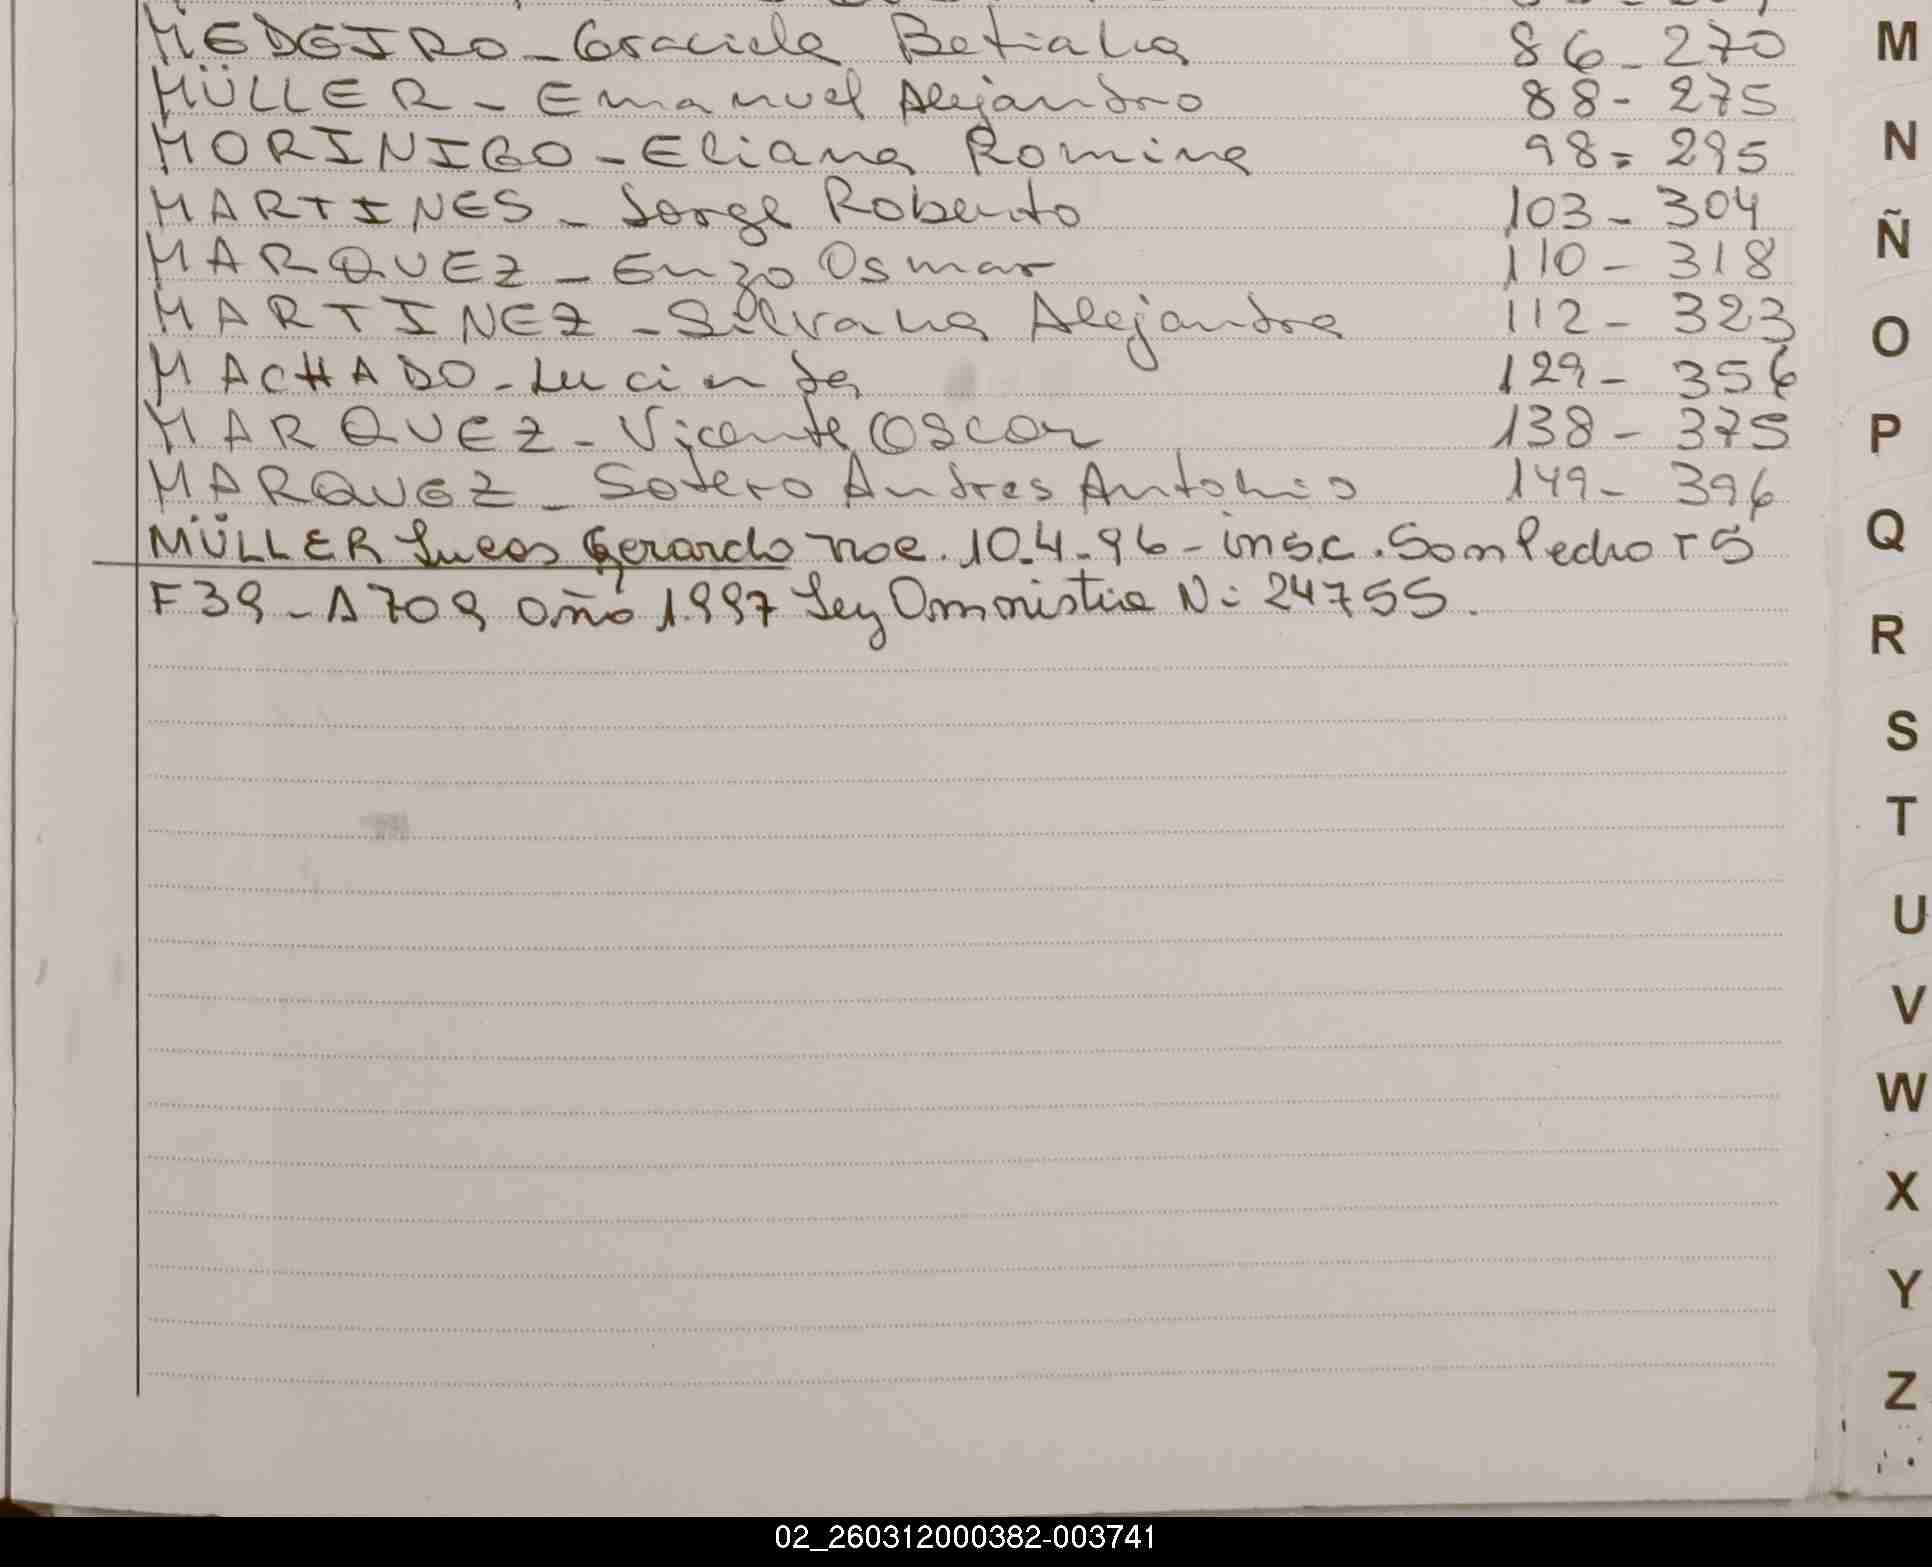 MEDEIRO - Graciela Betiana 86 - 270
MÜLLER - Emanuel Alejandro 88 - 275
MORINIGO - Eliana Romina 98 - 295
MARTINES - Jorge Roberto 103 - 304
MARQUEZ - Enzo Osmar 110 - 318
MARTINEZ - Silvana Alejandra 112 - 323
MACHADO - Lucinda 129 - 356
MARQUEZ - Vicente Oscar 138 - 375
MARQUEZ - Sotero Andres Antonio 149 - 396
MÜLLER Lucas Gerardo nac. 10.4.96 - insc. San Pedro T5
F39 - A709 año 1.997 Ley Amnistia N: 24755.
M
N
Ñ
O
P
Q
R
S
T
U
V
W
X
Y
Z
02_260312000382-003741